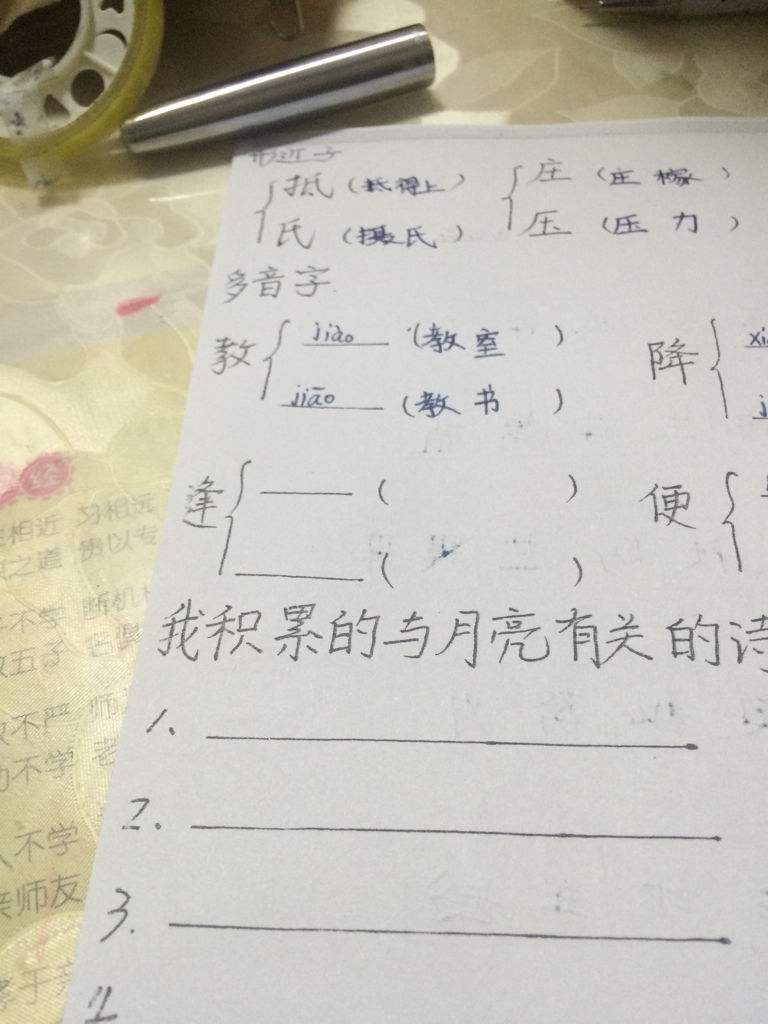 形近字
抵（抵得上） 庄（庄稼）
氏（摄氏） 压（压力）
多音字
教 jiào（教室） 降
jiāo（教书）
逢 （ ） 便
（ ）
我积累的与月亮有关的诗
1.
2.
3.
相近 习相远
之道 贵以专
不学 断机
五子
不严 师
不学
不学
亲师友
于